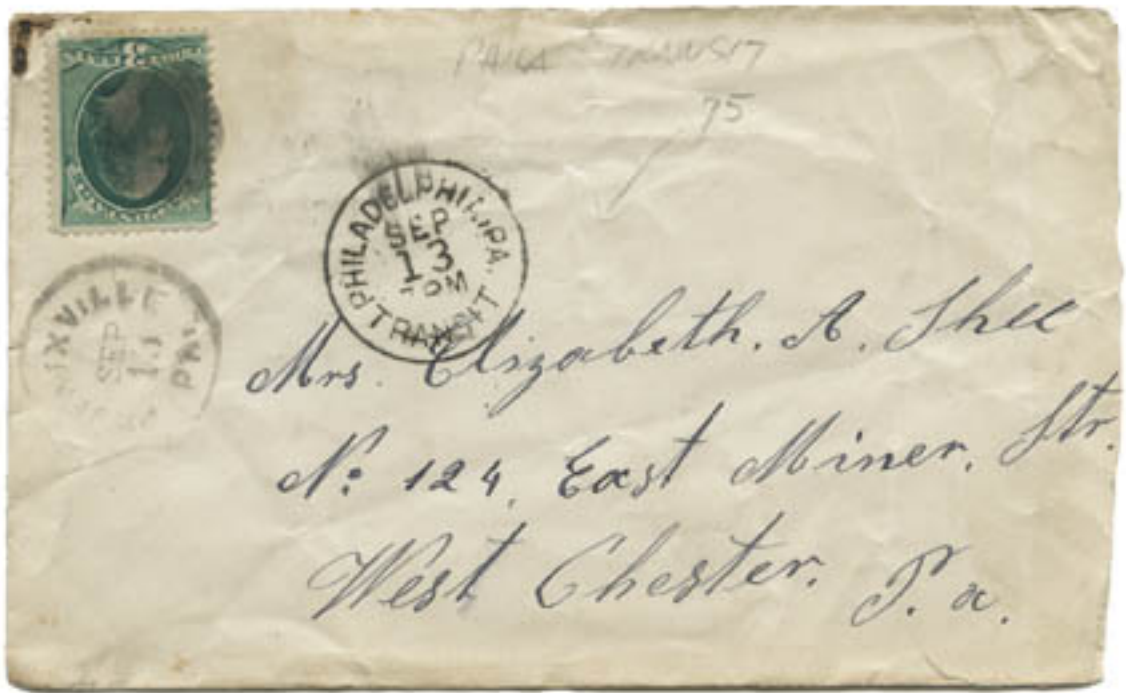 PHILA TRANSIT
75
PHILADELPHIA, PA.
SEP
13
PM
TRANSIT
XVILLE PA.
SEP
13
Mrs. Elizabeth. A. Shee
No: 124, East Miner, Str.
West Chester. P.a.